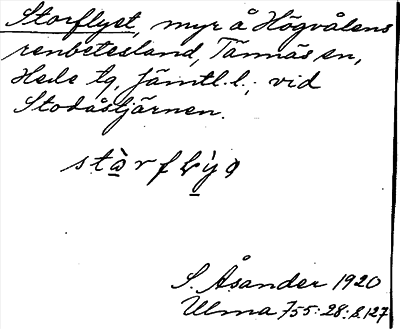 Storflyet, myr å Högvålens
renbetesland, Tännäs sn,
Hede tg, Jämtl. l.; vid
Stodåstjärnen.
S. Åsander 1920
Ulma 755:28:s.127